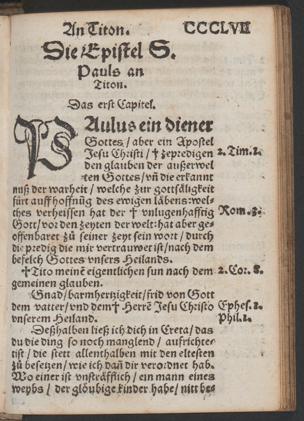 An Titon. CCCLVII
Die Epistel S.
Pauls an
Titon.
Das erst Capitel.
PAulus ein diener
Gottes / aber ein Apostel
Jesu Christi / † ze predigen 2. Tim. 2.
den glauben der außerwel
ten Gottes / vñ die erkannt
nuß der warheit / welche zur gottsäligkeit
fürt auff hoffnũg des ewigen läbens: wel-
thes verheissen hat der † vnlugenhafftig Rom. 3.
Gott / vor den zeyten der welt: hat aber ge-
offenbaret zů seiner zeyt sein wort / durch
die predig die mir vertrauwet ist / nach dem
befelch Gottes vnsers Heilands.
† Tito meinẽ eigentlichen sun nach dem 2. Cor. 8.
gemeinen glauben.
Gnad / barmhertzigkeit / frid von Gott
dem vatter / vnd dem † Herrẽ Jesu Christo Ephes. 1.
vnserem Heiland. Phil. 1.
Deßhalben ließ ich dich in Creta / das
du die ding so noch manglend / aufrichte-
tist / die stett allenthalben mit den eltesten
zů besetzen / wie ich dañ dir verordnet hab.
Wo einer ist vnsträfflich / ein mann eines
weybs / der gloubige kinder habe / nitt be-